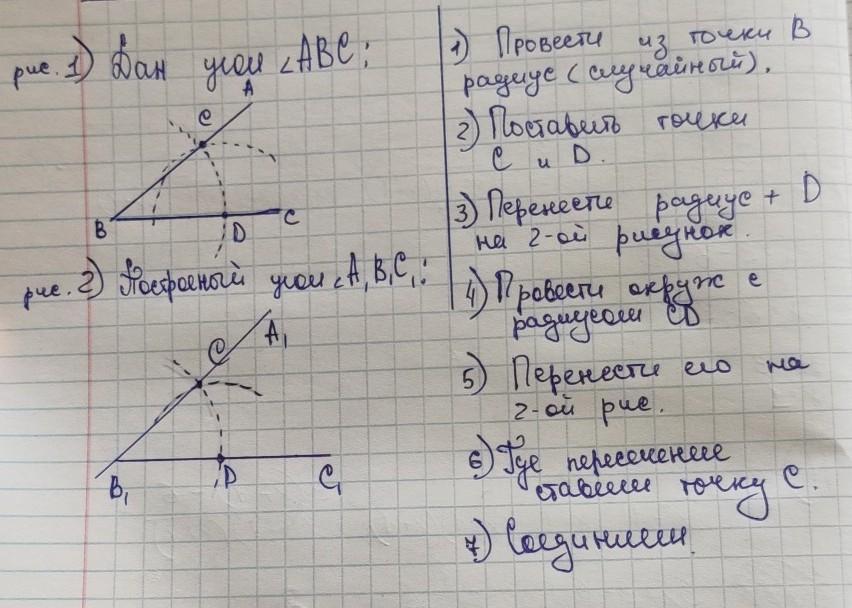 рис. 1) Дан угол ∠ABC:
A
C
B
D
C
рис. 2) Построеный угол ∠A₁B₁C₁:
A₁
C
B₁
D
C₁
1) Провести из точки B
радиус (случайный).
2) Поставить точки
C и D.
3) Перенести радиус + D
на 2-ой рисунок.
4) Провести окруж с
радиусом CD
5) Перенести его на
2-ой рис.
6) Где пересечение
ставим точку C.
7) Соединяем.